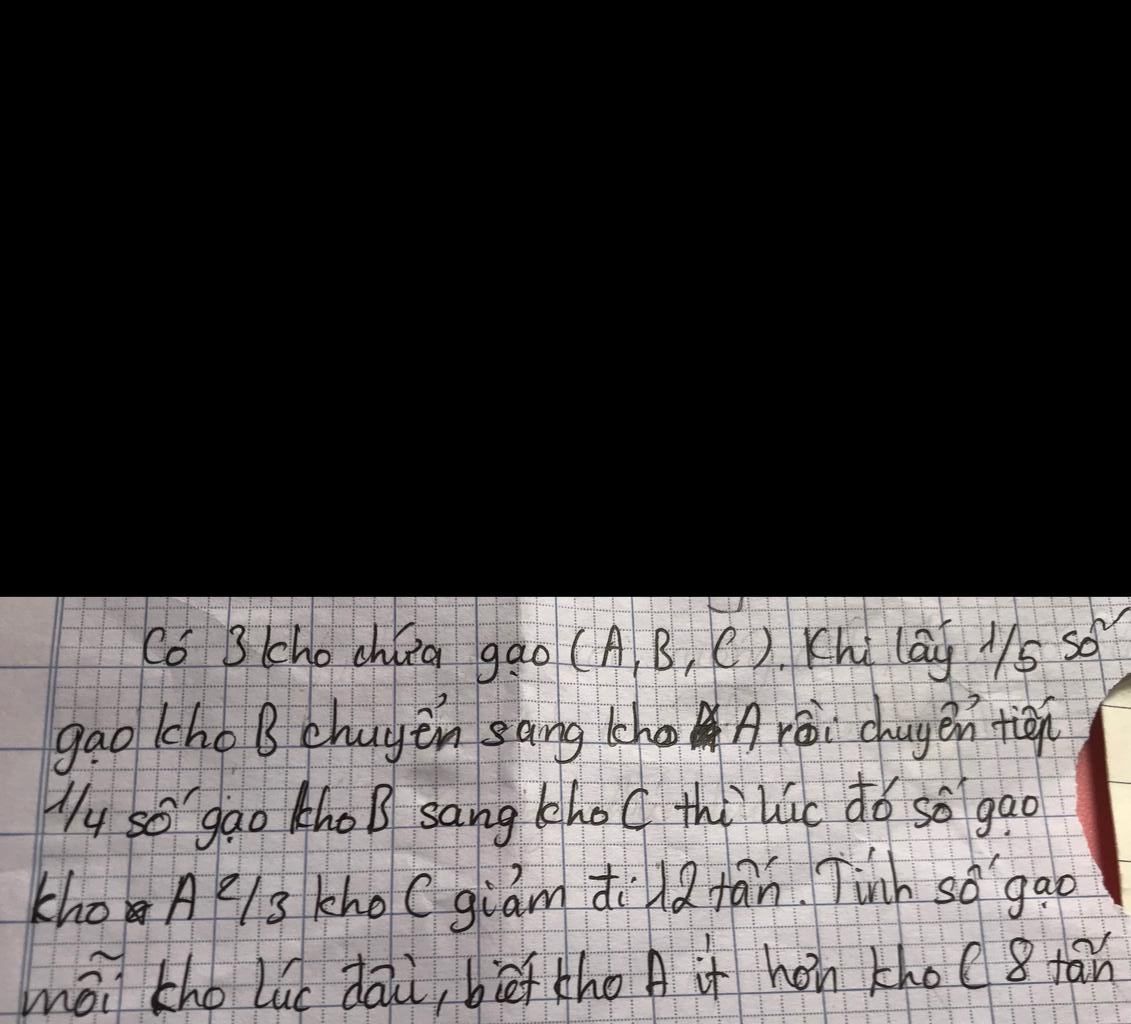 Có 3 kho chứa gạo (A, B, C). Khi lấy 1/5 số
gạo kho B chuyển sang kho A rồi chuyển tiếp
1/4 số gạo kho B sang kho C thì lúc đó số gạo
kho A 2/3 kho C giảm đi 12 tấn. Tính số gạo
mỗi kho lúc đầu, biết kho A ít hơn kho C 8 tấn